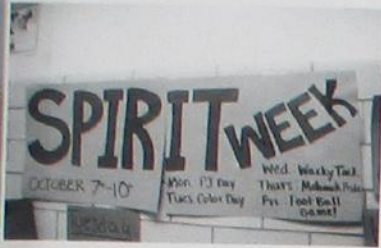 SPIRIT WEEK
OCTOBER 7th-10th
Mon. PJ Day
Tues Color Day
Wed. Wacky Tack
Thurs. Mohawk Pride
Fri. Foot Ball
Game!
Tuesday